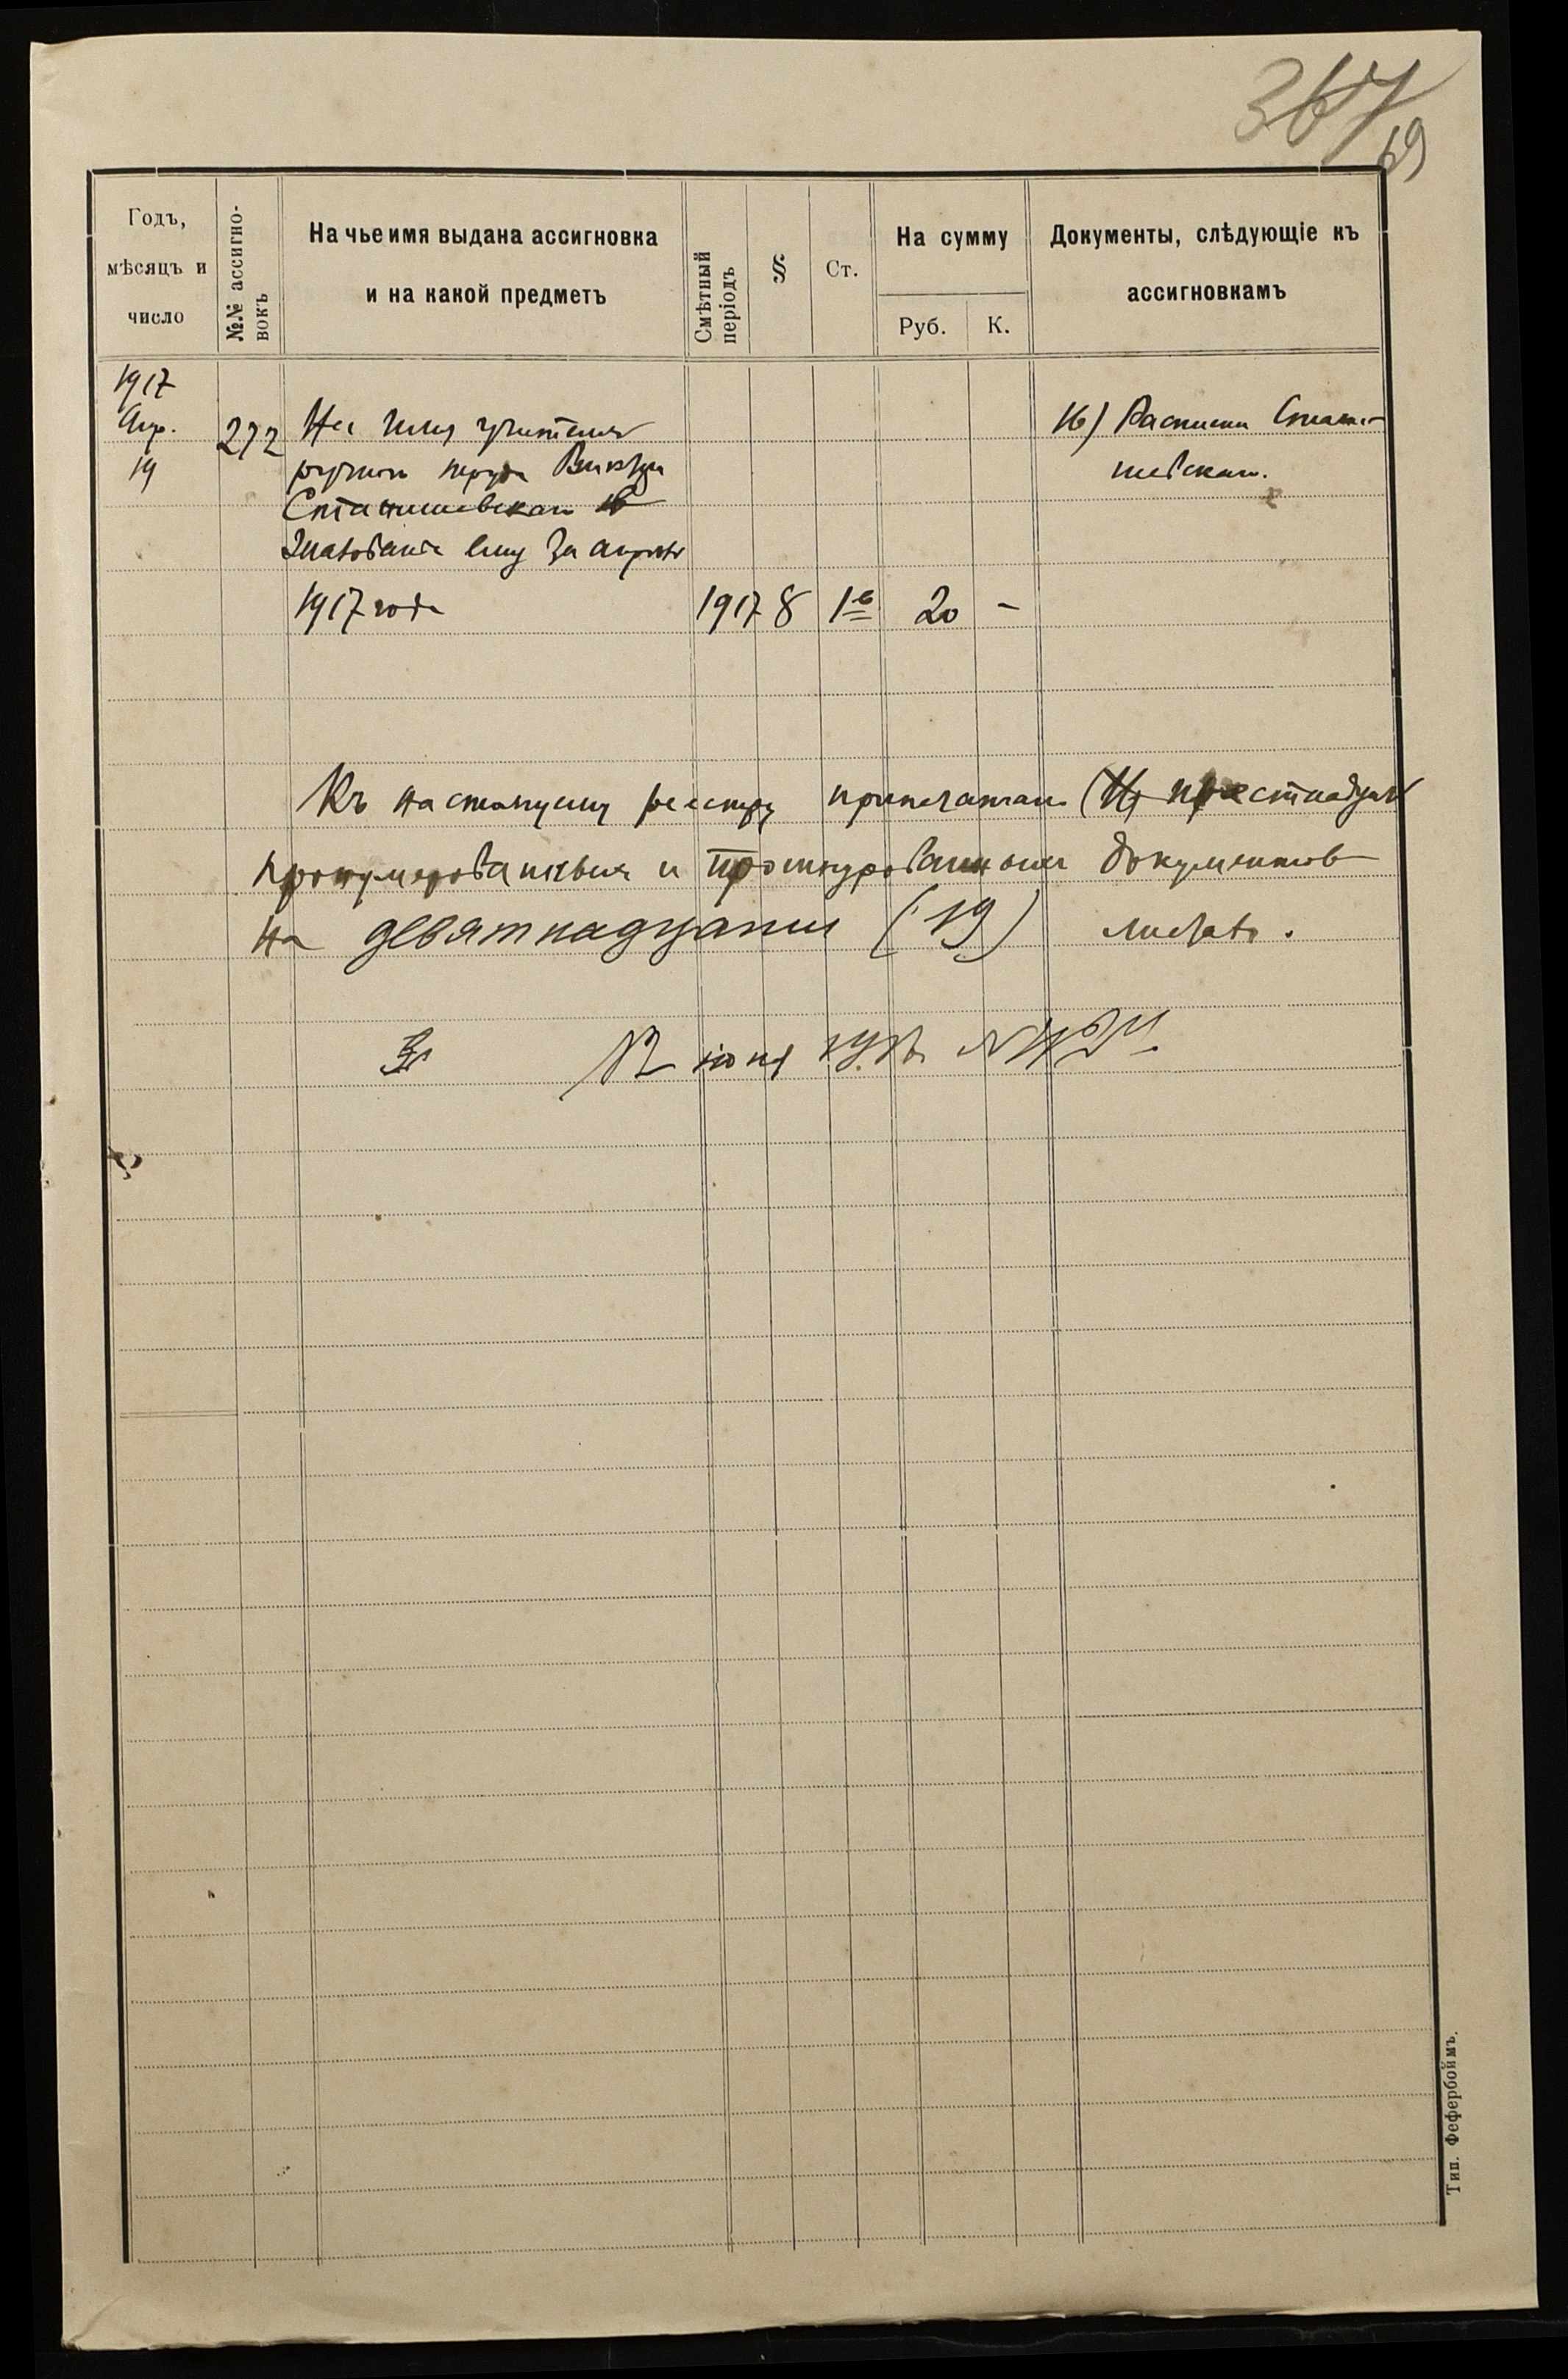 367
69
Годъ,
мѣсяцъ и
число
№№ ассигно-
вокъ
На чье имя выдана ассигновка
и на какой предметъ
Смѣтный
періодъ
§
Ст.
На сумму
Руб.
К.
Документы, слѣдующіе къ
ассигновкамъ
1917
Апр.
19
272
На имя учителя
ручного труда
Станишевскаго въ
жалованье ему за апрѣль
1917 года
1917
8
1
20
-
16) Расписка Стани-
шевскаго.
Къ настоящему реестру припечатано
пронумерованныхъ и прошнурованныхъ документовъ
на девятнадцати (19) листахъ.
12 іюня
Тип. Фефербоймъ.